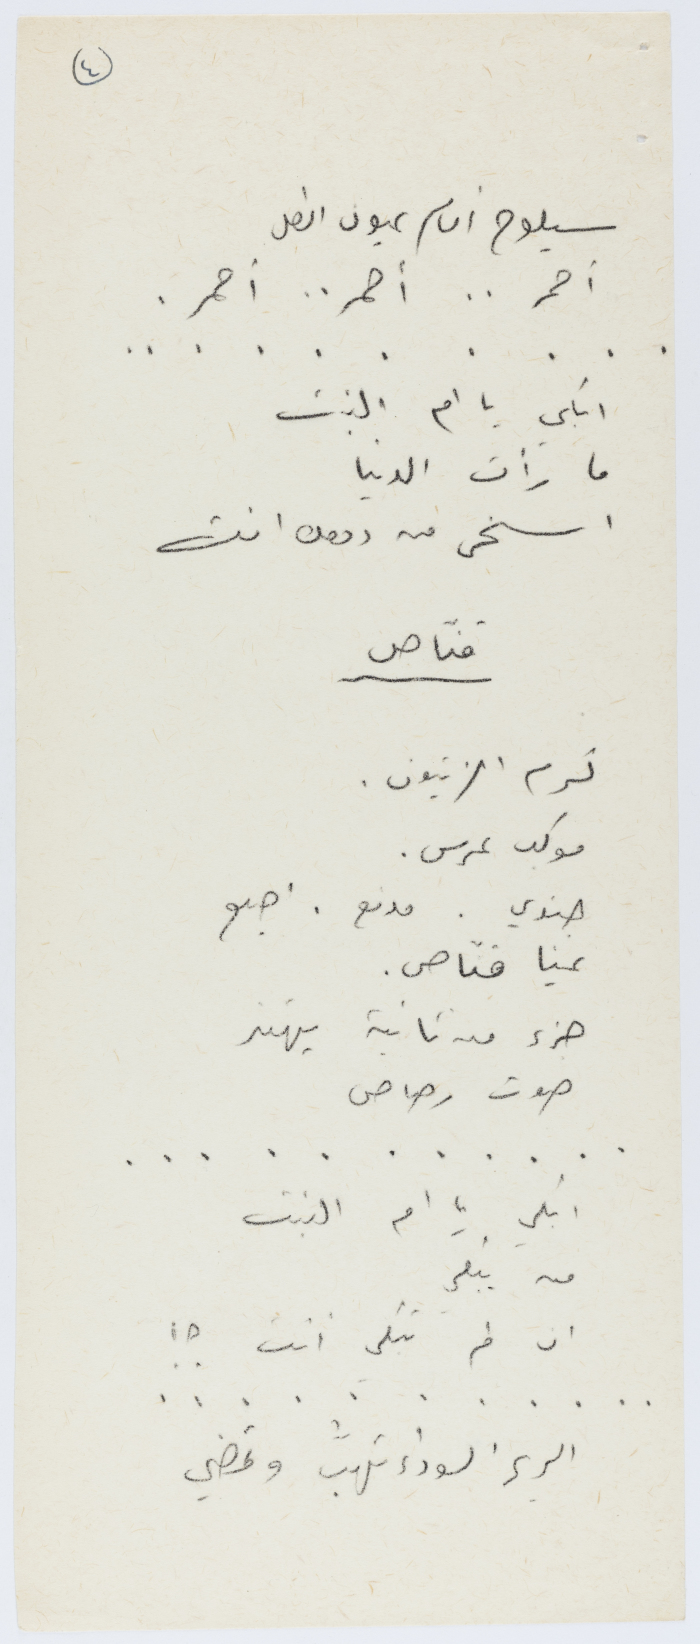 ٤
سيلوح أمام عيون الطفل
أحمر .. أحمر .. أحمر .
. . . . . . . . . .
ابكي يا ام البنت
ما رأت الدنيا
اسخى من دمعك انت
قنّاص
كرم الزيتون .
موكب عرس .
جندي . مدفع . اصبع
عينا قنّاص .
جزء من ثانية يهتز
صوت رصاص
. . . . . . . . . . .
ابكي يا ام البنت
من يبكي
ان لم تبكي أنت ؟!
. . . . . . . . . .
الريح السوداء تهبّ وتمضي